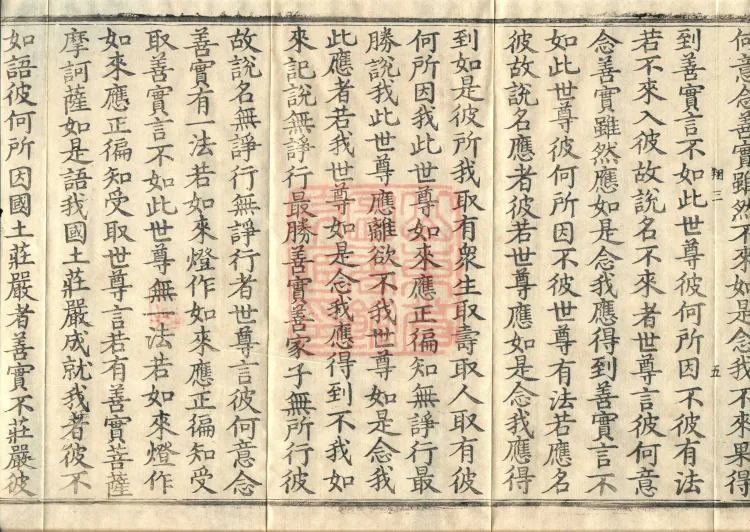 何意念善實雖然不來如是念我不來果得
到善實言不如此世尊彼何所因不彼有法
若不來入彼故說名不來者世尊言彼何意
翔三
五
念善實雖然應如是念我應得到善實言不
如此世尊彼何所因不彼世尊有法若應名
彼故說名應者彼若世尊應如是念我應得
到如是彼所我取有眾生取壽取人取有彼
何所因我此世尊如來應正徧知無諍行最
勝說我此世尊應離欲不我世尊如是念我
此應者若我世尊如是念我應得到不我如
來記說無諍行最勝善實善家子無所行彼
故說名無諍行無諍行者世尊言彼何意念
善實有一法若如來燈作如來應正徧知受
取善實言不如此世尊無一法若如來燈作
如來應正徧知受取世尊言若有善實菩薩
摩訶薩如是語我國土莊嚴成就我者彼不
如語彼何所因國土莊嚴者善實不莊嚴彼